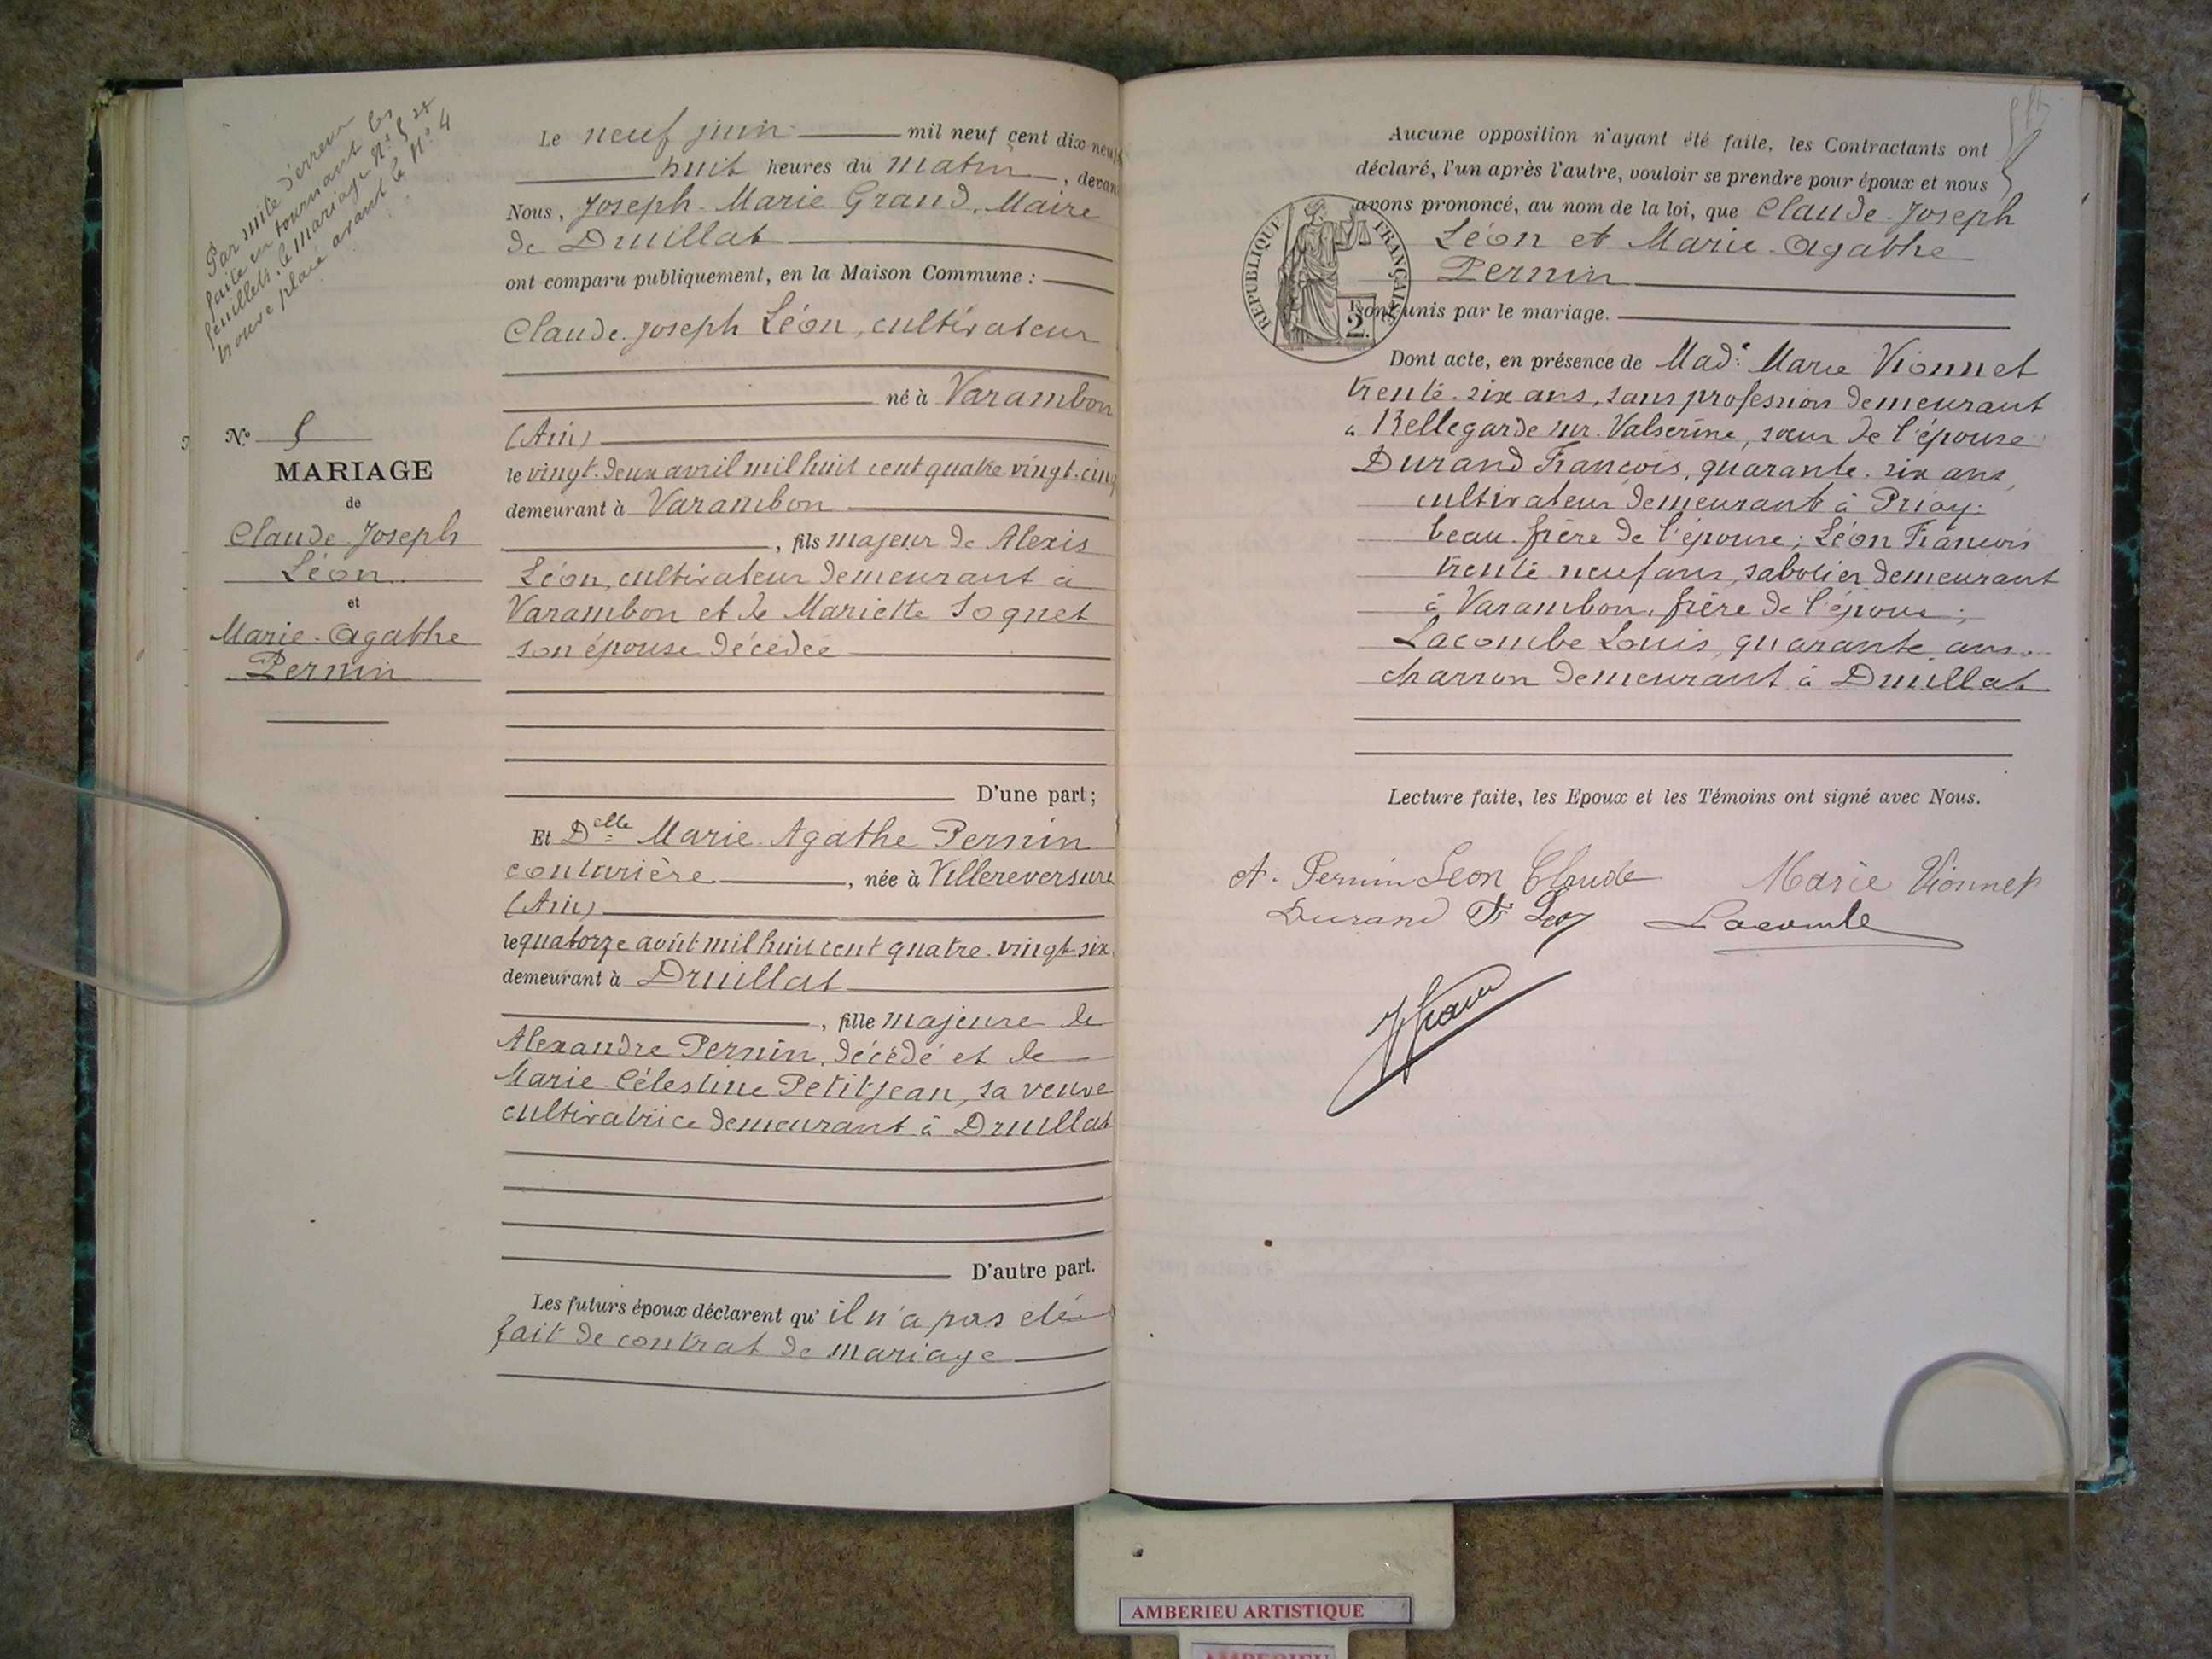 Par suite d'erreur
faite en tournant les
feuillets, le mariage N° 5 se
trouve placé avant le N° 4
N° 5
MARIAGE
de
Claude-Joseph
Léon
et
Marie-Agathe
Pernin
Le neuf juin mil neuf cent dix-neuf
huit heures du matin, devan
Nous, Joseph-Marie Grand, Maire
de Druillat
ont comparu publiquement, en la Maison Commune :
Claude-Joseph Léon, cultivateur
né à Varambon
(Ain)
le vingt-deux avril mil huit cent quatre-vingt-cinq
demeurant à Varambon
, fils majeur de Alexis
Léon, cultivateur demeurant à
Varambon et de Mariette Soquet
son épouse décédée
D'une part ;
Et Delle Marie-Agathe Pernin
couturière, née à Villereversure
(Ain)
le quatorze août mil huit cent quatre-vingt-six
demeurant à Druillat
, fille majeure de
Alexandre Pernin, décédé et de
Marie-Célestine Petitjean, sa veuve
cultivatrice demeurant à Druillat
D'autre part.
Les futurs époux déclarent qu' il n'a pas été
fait de contrat de mariage
Aucune opposition n'ayant été faite, les Contractants ont
déclaré, l'un après l'autre, vouloir se prendre pour époux et nous
avons prononcé, au nom de la loi, que Claude-Joseph
Léon et Marie-Agathe
Pernin
Sont unis par le mariage.
RÉPUBLIQUE FRANÇAISE
2
Dont acte, en présence de Mad: Marie Vionnet
trente-six ans, sans profession demeurant
à Bellegarde sur Valserine, sœur de l'épouse
Durand François, quarante-six ans,
cultivateur demeurant à Priay,
beau-frère de l'épouse ; Léon François
trente-neuf ans, sabotier demeurant
à Varambon, frère de l'époux ;
Lacombe Louis, quarante ans,
charron demeurant à Druillat
Lecture faite, les Epoux et les Témoins ont signé avec Nous.
A. Pernin Leon Claude Marie Vionnet
Durand Fs Leon Lacombe
AMBERIEU ARTISTIQUE
AMBERIEU